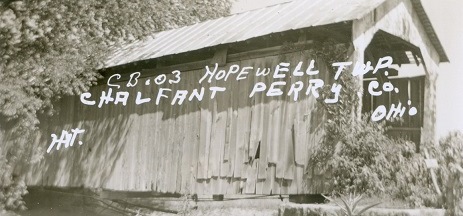 C.B.-03 HOPEWELL TWP.
CHALFANT PERRY CO.
OHIO